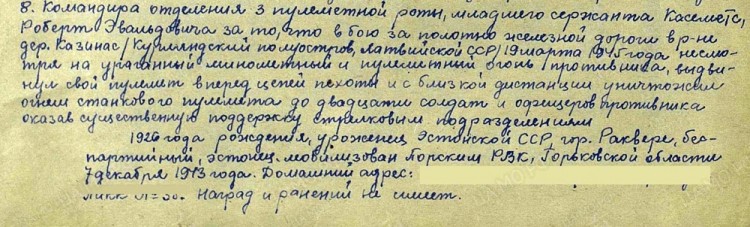 8. Командира отделения 3 пулеметной роты, младшего сержанта Касеметс,
Роберта Эвальдовича за то, что в бою за полотно железной дороги в р-не
дер. Казинас /Курляндский полуостров, Латвийской ССР/ 19 марта 1945 года несмо-
тря на ураганный минометный и пулеметный огонь противника, выдви-
нул свой пулемет вперед цепей пехоты и с близкой дистанции уничтожил
огнем станкового пулемета до двадцати солдат и офицеров противника
оказав существенную поддержку стрелковым подразделениям
1926 года рождения, уроженец Эстонской ССР, гор. Раквере, бес-
партийный, эстонец. мобилизован Горским РВК, Горьковской области
7 декабря 1943 года. Домашний адрес:
Наград и ранений не имеет.